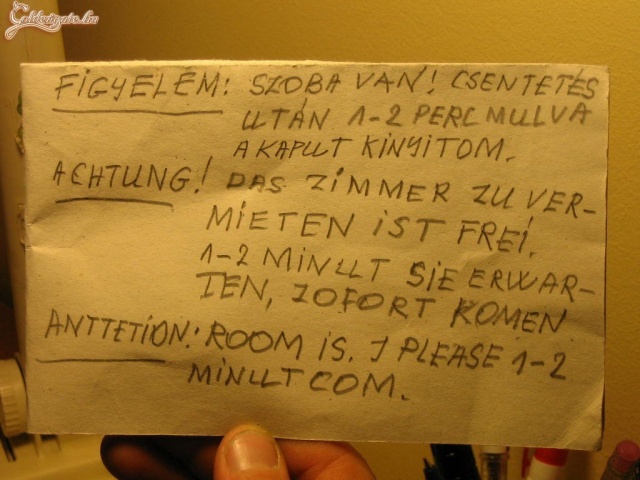 Goldvágate.hu
FIGYELEM: SZOBA VAN! CSENTETÉS
UTÁN 1-2 PERC MULVA
A KAPUT KINYITOM.
ACHTUNG! DAS ZIMMER ZU VER-
MIETEN IST FREI.
1-2 MINUT SIE ERWAR-
TEN, ZOFORT KOMEN
ANTTETION: ROOM IS. I PLEASE 1-2
MINUT COM.